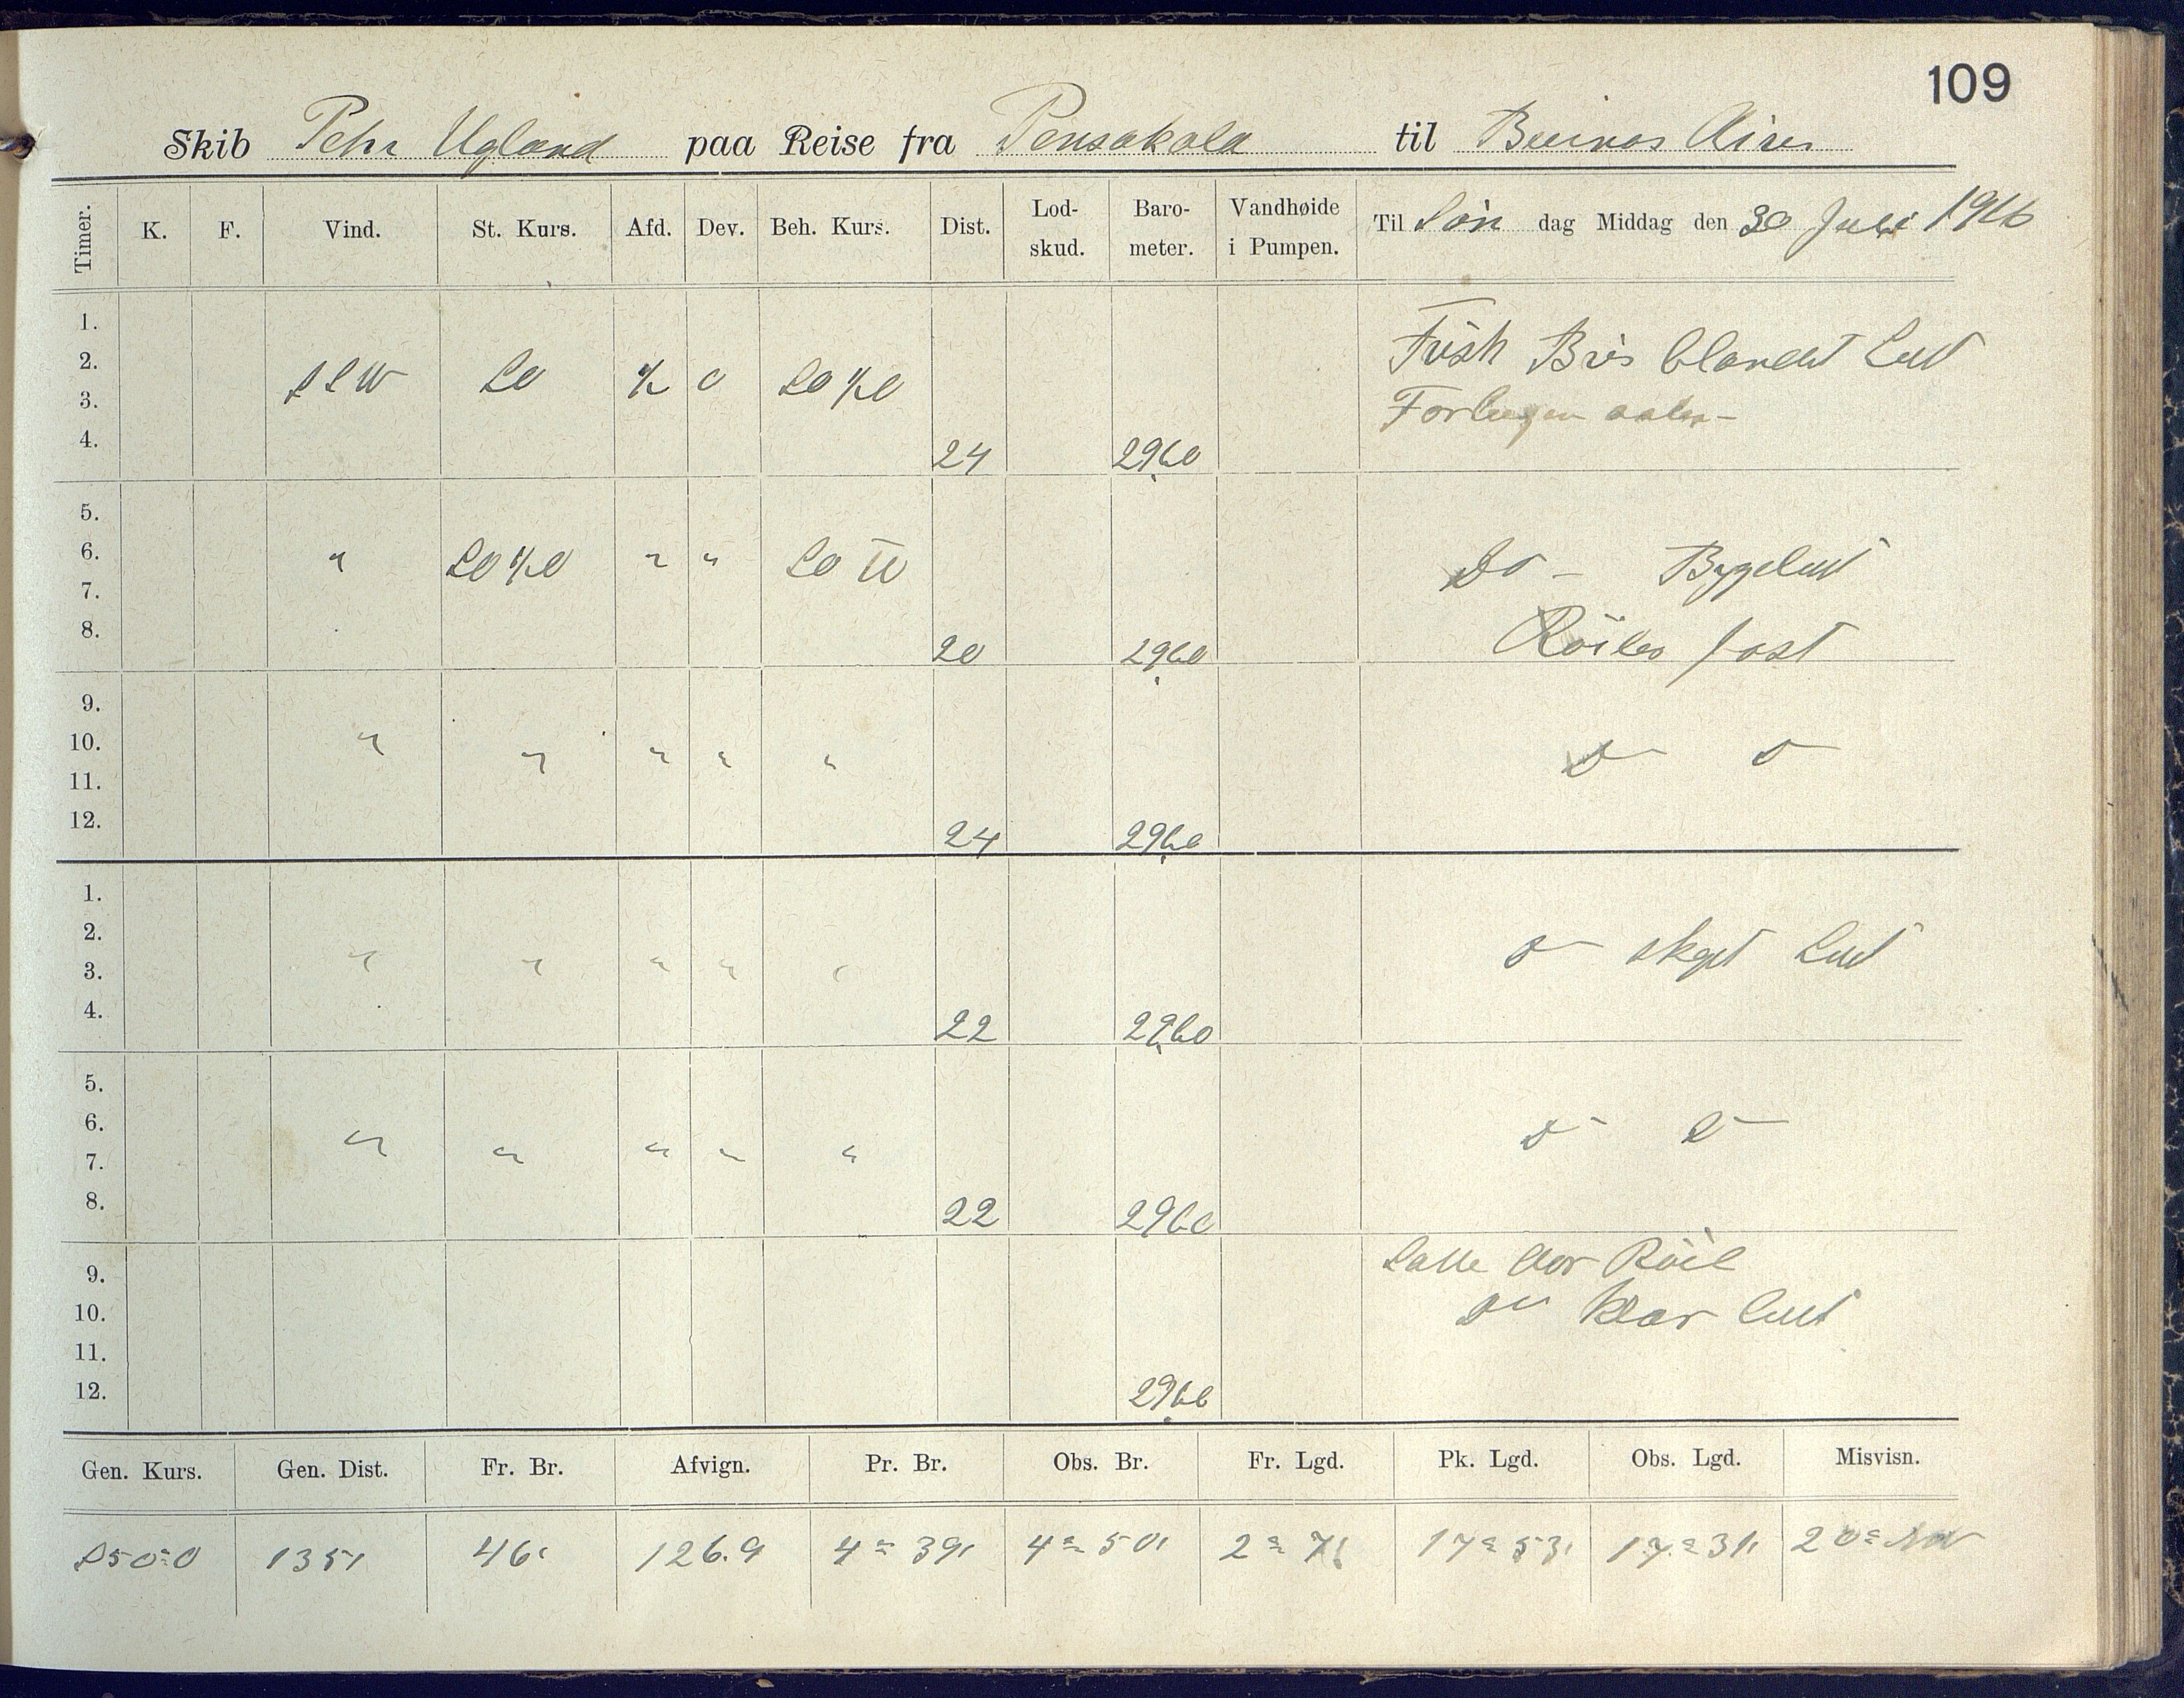 109
Skib Pehr Ugland paa Reise fra Pensakola til Buinos Aires
Timer. K. F. Vind. St. Kurs. Afd. Dev. Beh. Kurs. Dist. Lod-skud. Baro-meter. Vandhøide i Pumpen. Til Søn dag Middag den 30 Juli 1916
1.
2. Frisk Bris blandet Luft
3. SSW SO ½ 0 SO½O
4. 24 2960
5.
6. " SO½O " " SO
7. Do - Bygeluft
8. 20 2960 Röiler fast
9.
10. " " " " " D o
11.
12. 24 2960
1.
2. skyet Luft
3. " " " " "
4. 22 2960
5.
6.
7. " " " " "
8. 22 2960
9. Satte Röil
10. klar luft
11.
12. 2960
Gen. Kurs. Gen. Dist. Fr. Br. Afvign. Pr. Br. Obs. Br. Fr. Lgd. Pk. Lgd. Obs. Lgd. Misvisn.
S50°O 135' 46' 126.9 4° 39' 4° 50' 2° 7' 17° 53' 17° 31' 20°